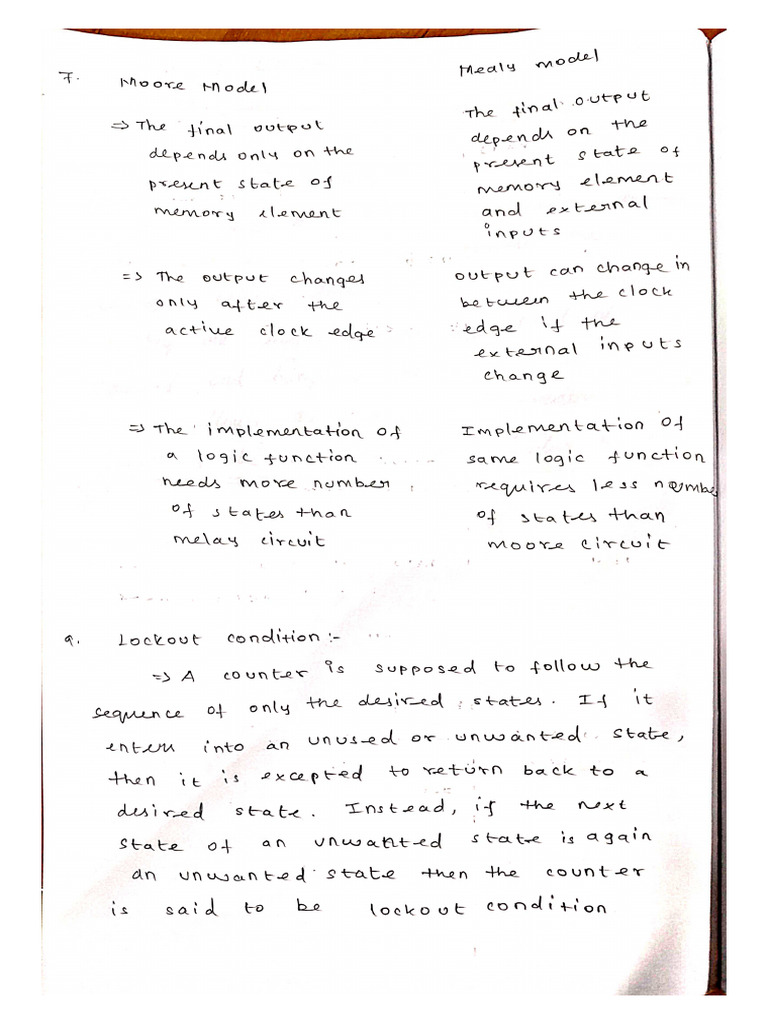 7. Moore Model
⇒ The final output
depends only on the
present state of
memory element
⇒ The output changes
only after the
active clock edge
⇒ The implementation of
a logic function
needs more number
of states than
melay circuit
Mealy model
The final output
depends on the
present state of
memory element
and external
inputs
output can change in
between the clock
edge if the
external inputs
change
Implementation of
same logic function
requires less number
of states than
moore circuit
9. Lockout condition :-
⇒ A counter is supposed to follow the
sequence of only the desired states. If it
enters into an unused or unwanted state,
then it is excepted to return back to a
desired state. Instead, if the next
state of an unwanted state is again
an unwanted state then the counter
is said to be lockout condition